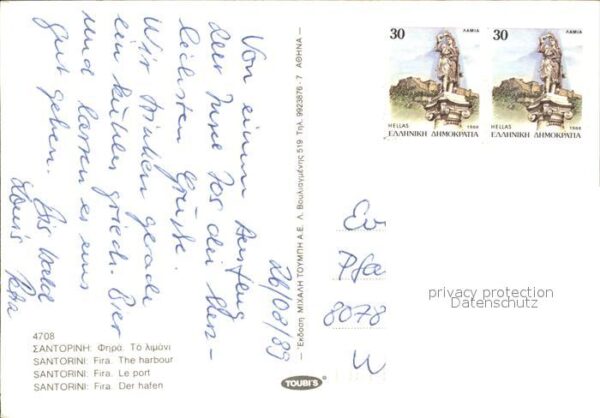 26/08/89
Von einem Ausflug
der Insel Ios die herz-
lichsten Grüße.
Wir trinken gerade
ein kühles griech. Bier
und lassen es uns
gut gehen. Bis bald
Petra
4708
ΣΑΝΤΟΡΙΝΗ: Φηρά. Τό λιμάνι
SANTORINI: Fira. The harbour
SANTORINI: Fira. Le port
SANTORINI: Fira. Der hafen
— Έκδοση ΜΙΧΑΛΗ ΤΟΥΜΠΗ Α.Ε. Λ. Βουλιαγμένης 519 Τηλ. 9923876 - 7 ΑΘΗΝΑ —
TOUBI'S
30 ΛΑΜΙΑ
HELLAS 1988
ΕΛΛΗΝΙΚΗ ΔΗΜΟΚΡΑΤΙΑ
30 ΛΑΜΙΑ
HELLAS 1988
ΕΛΛΗΝΙΚΗ ΔΗΜΟΚΡΑΤΙΑ
Pfa
8078
privacy protection
Datenschutz